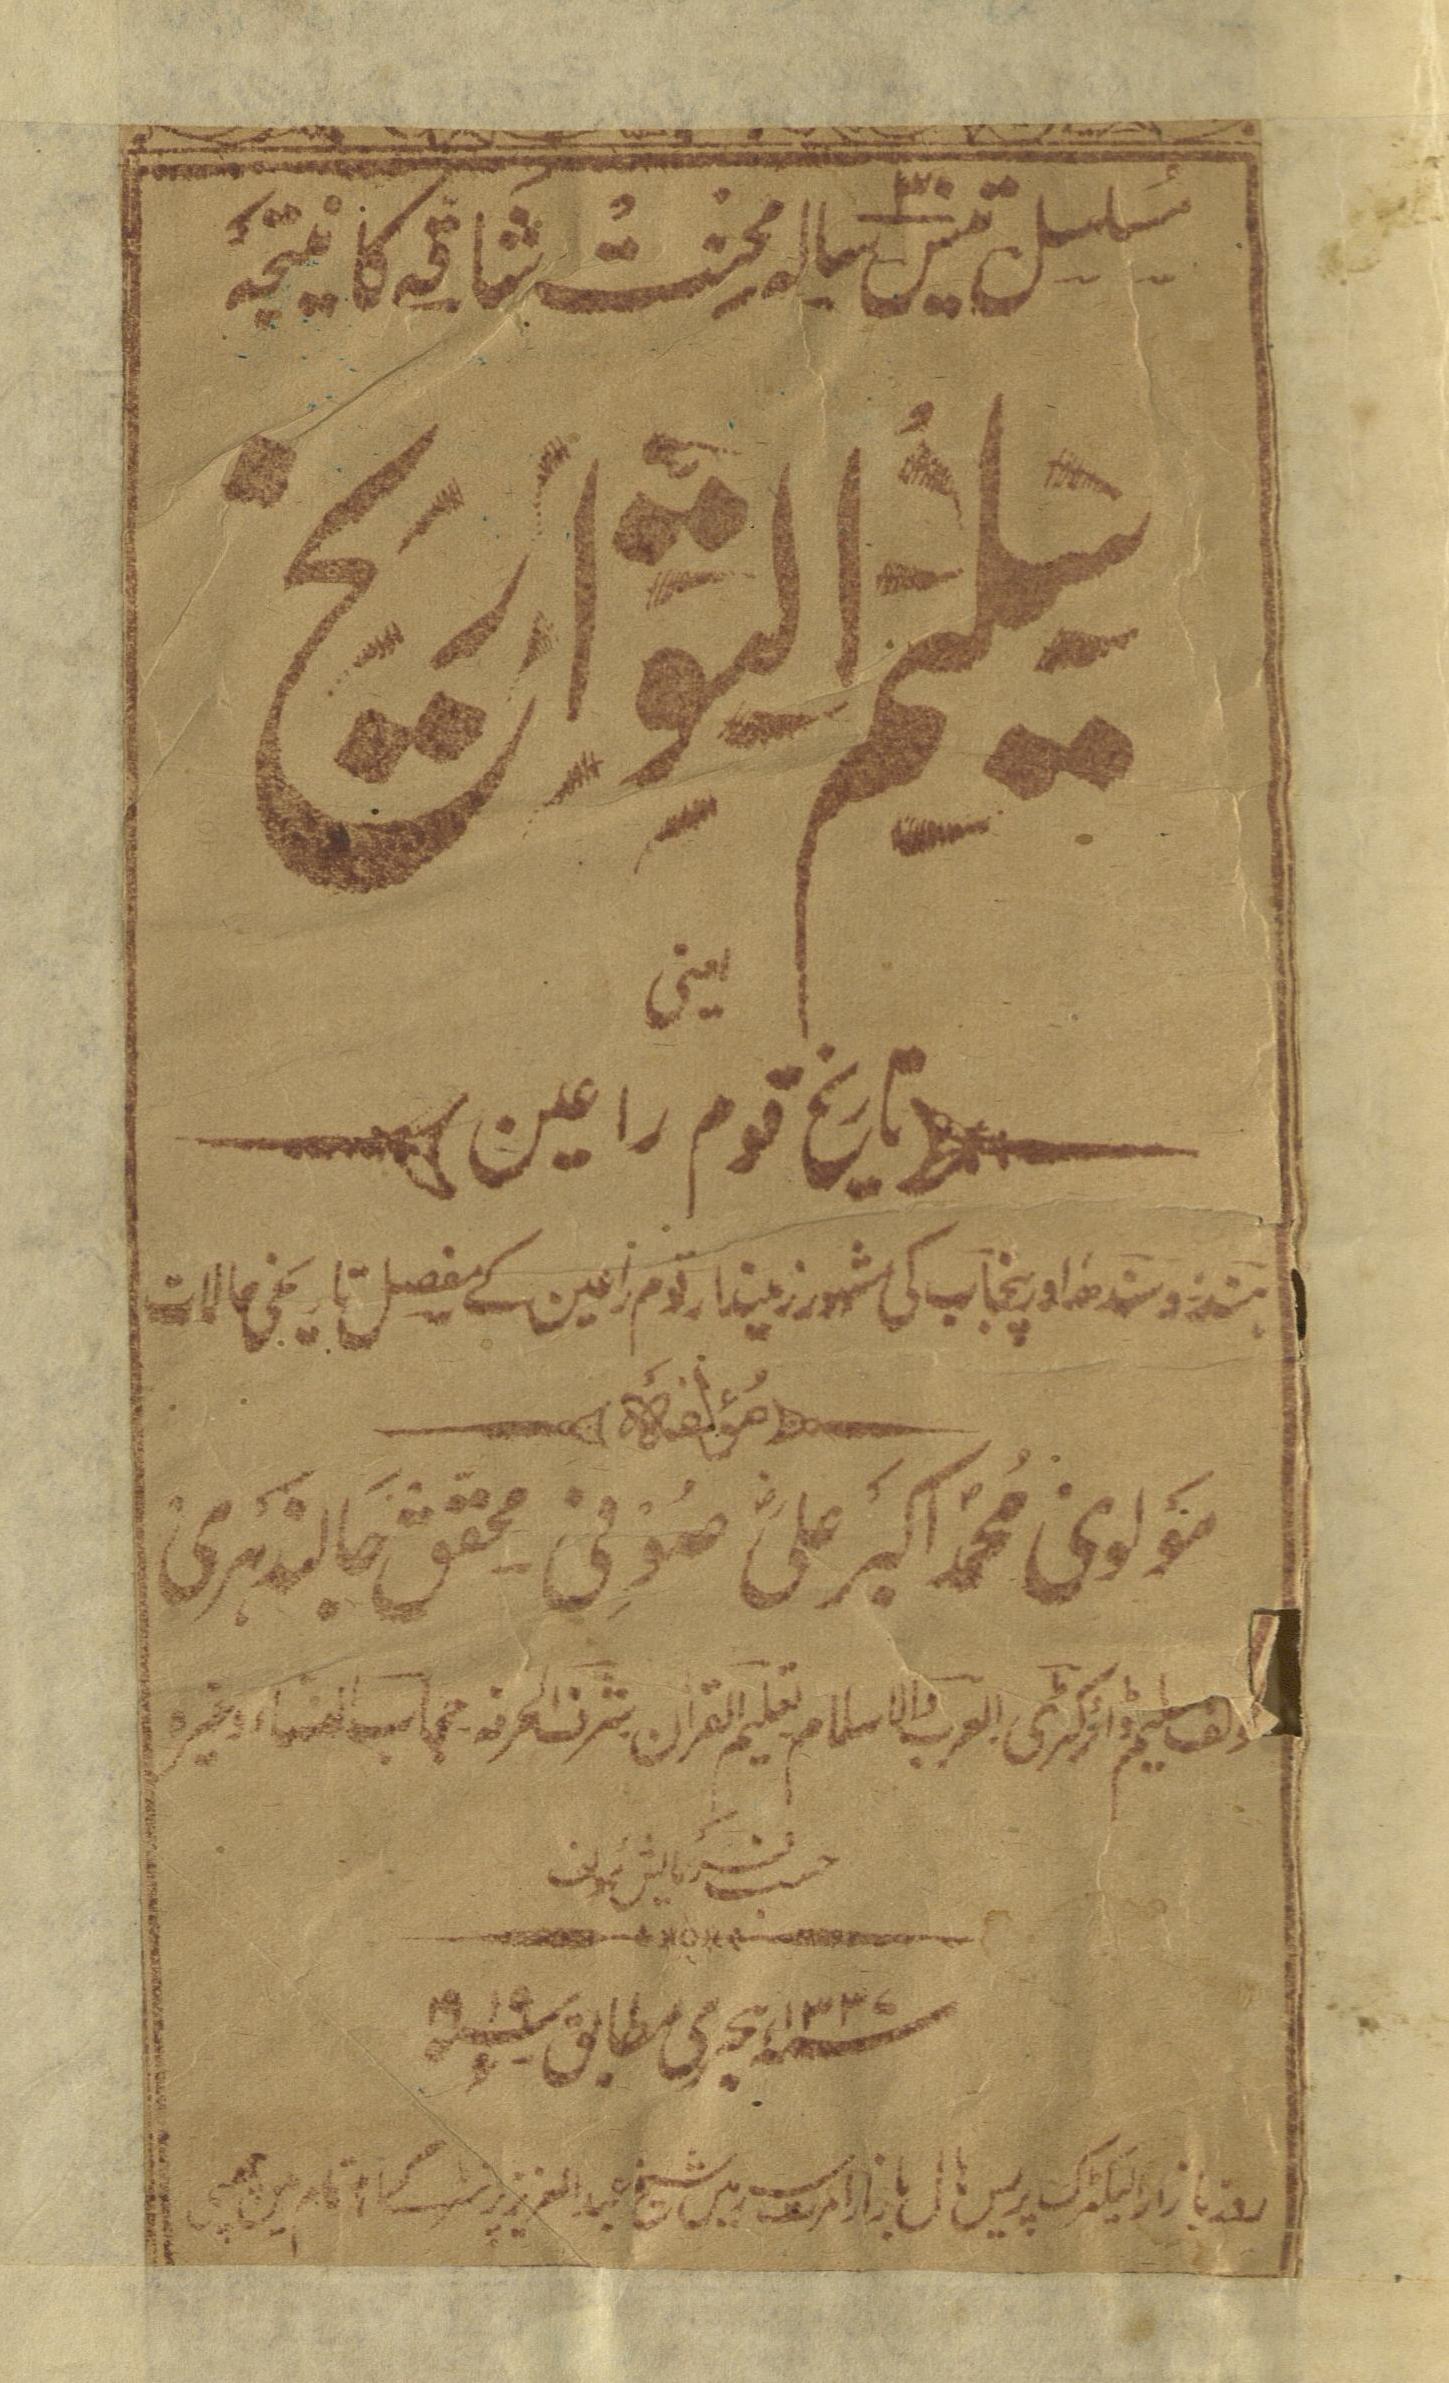 مسلسل تیس ۳۰ سالہ محنت شاقہ کا نتیجہ
سلیم التواریخ
یعنی
تاریخ قوم راعین
ہند و سندھ اور پنجاب کی مشہور زمیندار قوم راعین کے مفصل تاریخی حالات
مؤلفہ
مولوی محمد اکبر علی صوفی۔ محقق جالندھری
مؤلف سلیم ڈائرکٹری۔ العرب والاسلام۔ تعلیم القرآن۔ شرف الحرفہ۔ حجاب النساء وغیرہ
حسب فرمایش مؤلف
سنہ ۱۳۳۷ ہجری مطابق سنہ ۱۹۱۹ء
روز بازار الیکٹرک پریس ہال بازار امرتسر میں شیخ عبدالعزیز پرنٹر کے اہتمام میں چھپی